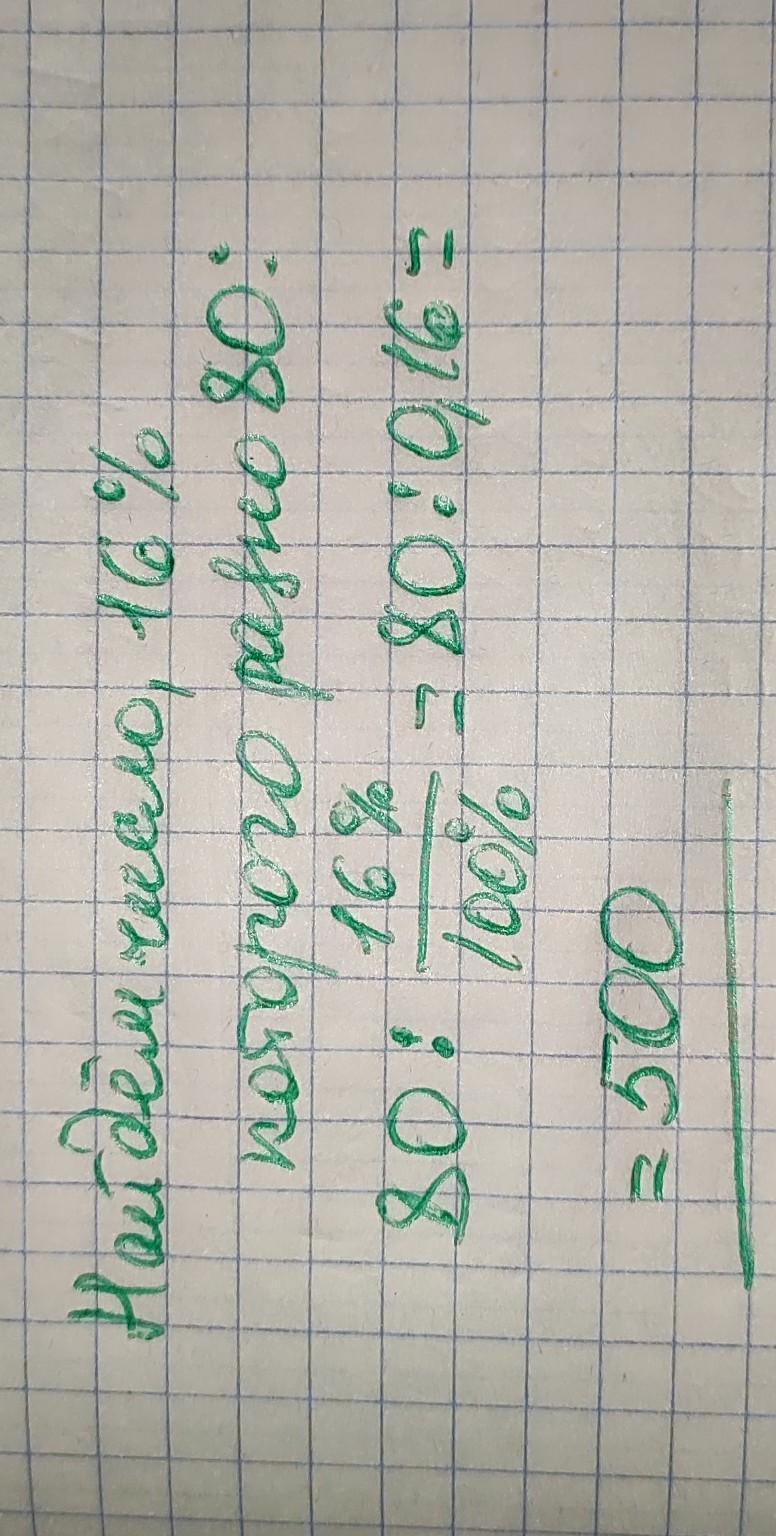 Найдём число, 16%
которого равно 80:
80 : 16% / 100% = 80 : 0,16 =
= 500